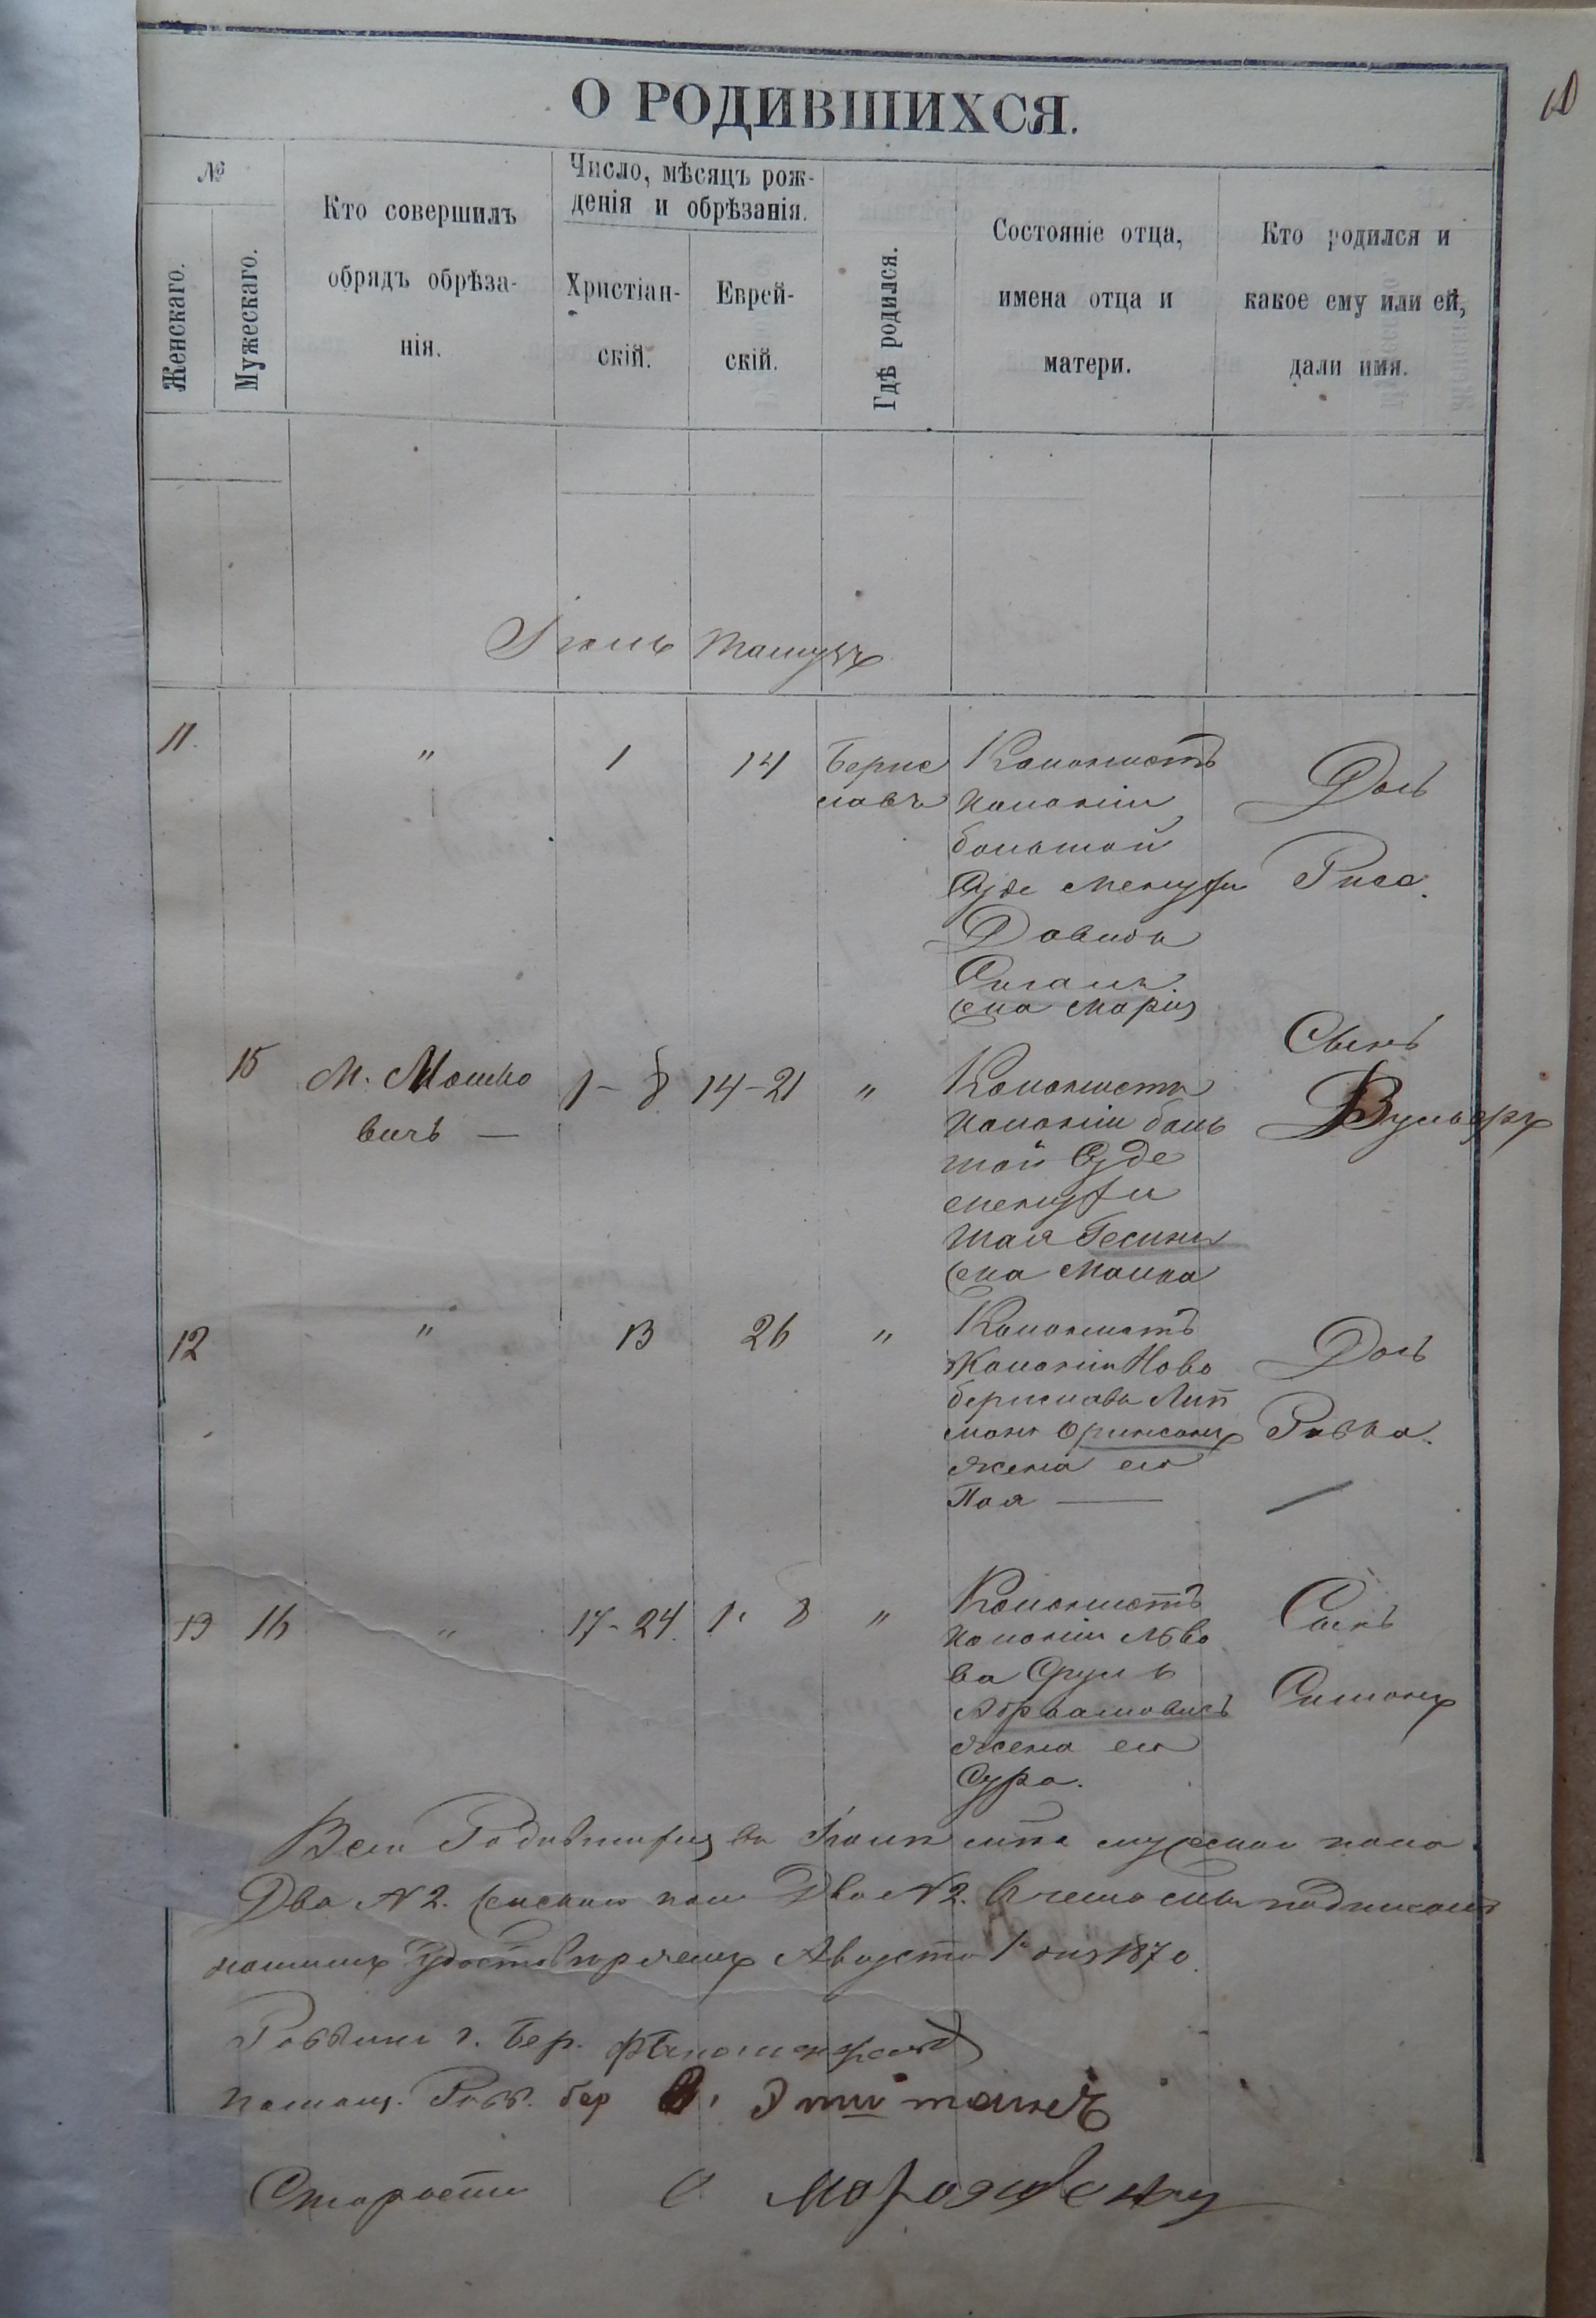 10
О РОДИВШИХСЯ.
№
Женскаго.
Мужескаго.
Кто совершилъ
обрядъ обрѣза-
нія.
Число, мѣсяцъ рож-
денія и обрѣзанія.
Христіан-
скій.
Еврей-
скій.
Гдѣ родился.
Состояніе отца,
имена отца и
матери.
Кто родился и
какое ему или ей,
дали имя.
Іюль Тамузъ
11. " 1 14
Берис
лавъ
Колонистъ
колоніи
большой
Сейде Менухи
Давидъ
жена Марія
Дочь
Риса.
15 М. Мошко
вичъ —
1 - 8 14 - 21 "
Колонистъ
колоніи боль
шой Сейде
менухи
Шая Гесинъ
жена Малка
Сынъ
Вульфъ
12 " 13 26 "
Колонистъ
Колоніи Ново
береславъ Лип
манъ Оринсонъ
жена его
Пая —
Дочь
Ривка.
13 16 " 17 - 24. 1. 8 "
Колонистъ
колоніи Льво
ва Сруль
Абрамовичъ
жена его
Сура.
Сынъ
Симонъ
Всего Родившихся въ Іюлѣ м-цѣ мужеска пола
Два № 2. женскаго пола Два № 2. Въ чемъ съ подписомъ
нашимъ Удостовѣряемъ Августа 1 дня 1870.
Раввинъ г. Бер.
Помощ. Равв. бер
Староста